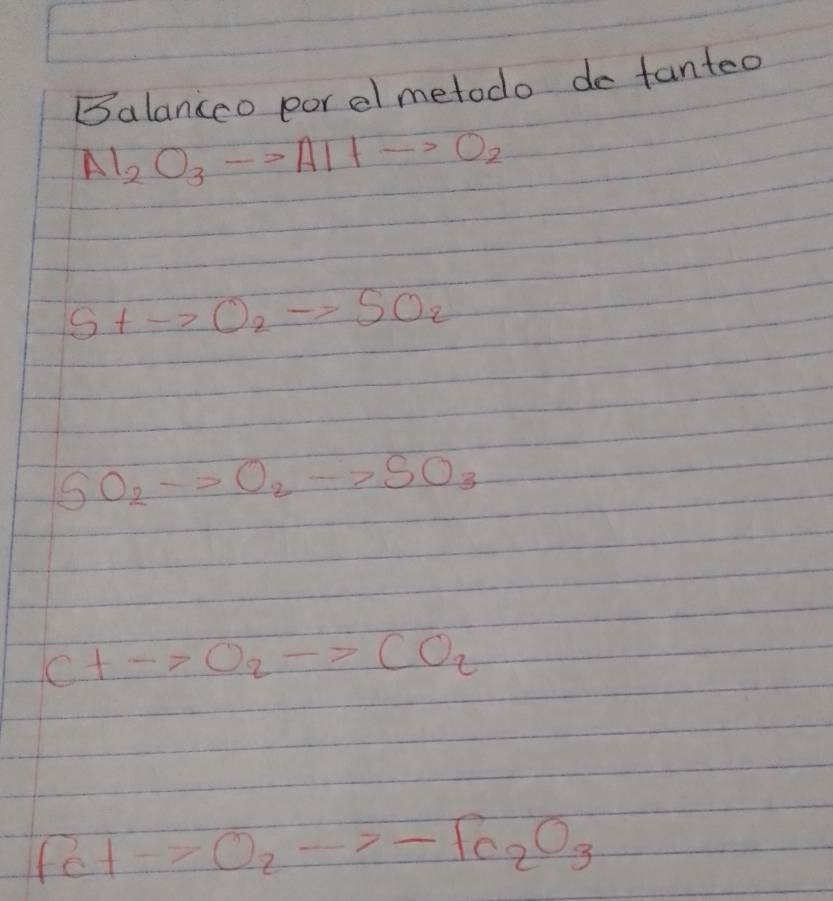 Balanceo por el metodo de tanteo
Al₂O₃ -> Al + -> O₂
S + -> O₂ -> SO₂
SO₂ -> O₂ -> SO₃
C + -> O₂ -> CO₂
Fe + -> O₂ -> - Fe₂O₃